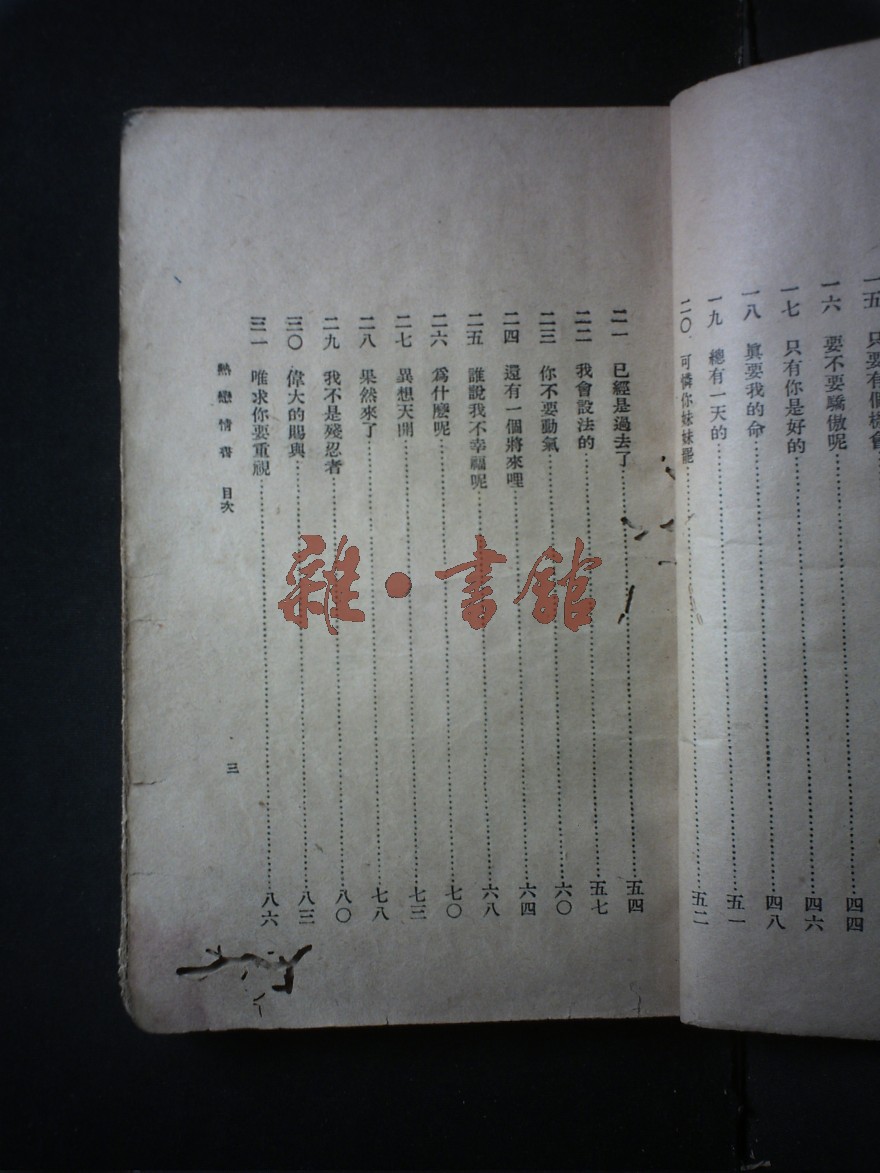 一五 只要有個機會
一六 要不要驕傲呢……四四
一七 只有你是好的……四六
一八 眞要我的命……四八
一九 總有一天的……五一
二〇 可憐你妹妹罷……五二
二一 已經是過去了……五四
二二 我會設法的……五七
二三 你不要動氣……六〇
二四 還有一個將來哩……六四
二五 誰說我不幸福呢……六八
二六 爲什麽呢……七〇
二七 異想天開……七三
二八 果然來了……七八
二九 我不是殘忍者……八〇
三〇 偉大的賜與……八三
三一 唯求你要重視……八六
熱戀情書 目次 三
雜·書館